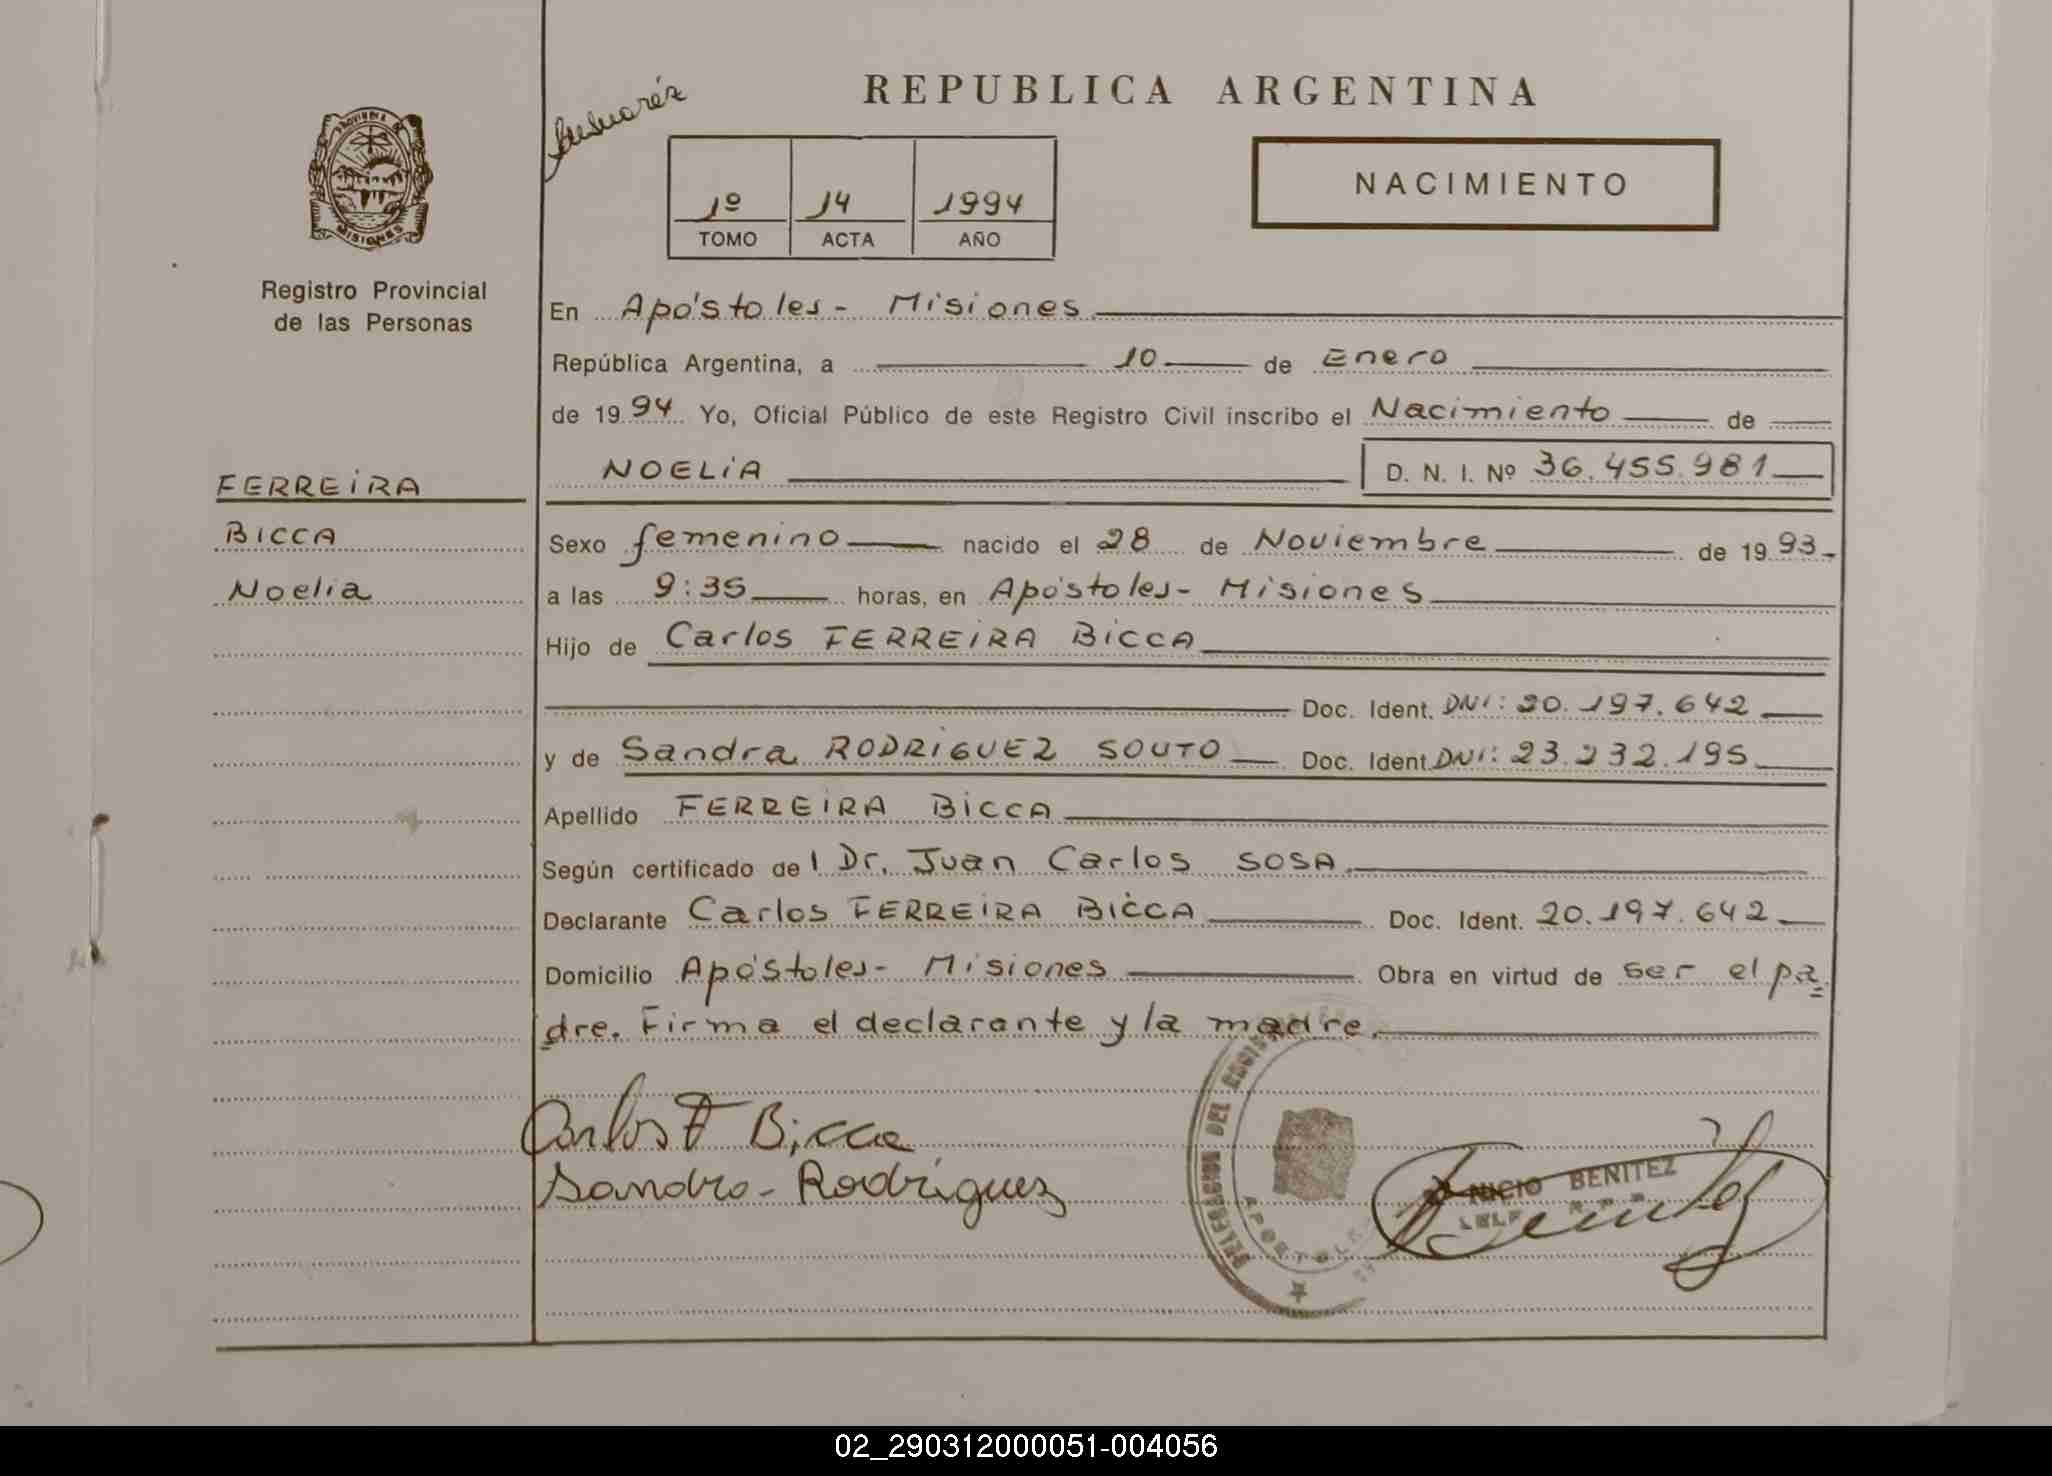 REPUBLICA ARGENTINA
PROVINCIA DE
MISIONES
Registro Provincial
de las Personas
1º 14 1994
TOMO ACTA AÑO
NACIMIENTO
En Apóstoles- Misiones
República Argentina, a 10 de Enero
de 1994 Yo, Oficial Público de este Registro Civil inscribo el Nacimiento de
NOELIA D. N. I. Nº 36.455.981
FERREIRA
BICCA
Noelia
Sexo femenino nacido el 28 de Noviembre de 1993
a las 9:35 horas, en Apóstoles- Misiones
Hijo de Carlos FERREIRA BICCA
Doc. Ident. DNI: 20.197.642
y de Sandra RODRIGUEZ SOUTO Doc. Ident. DNI: 23.232.195
Apellido FERREIRA BICCA
Según certificado del Dr. Juan Carlos SOSA
Declarante Carlos FERREIRA BICCA Doc. Ident. 20.197.642
Domicilio Apóstoles- Misiones Obra en virtud de ser el pa
dre. Firma el declarante y la madre.
Carlos F Bicca
Sandra- Rodríguez
DELEGACION DEL
APOSTOLES
BENITEZ
02_290312000051-004056